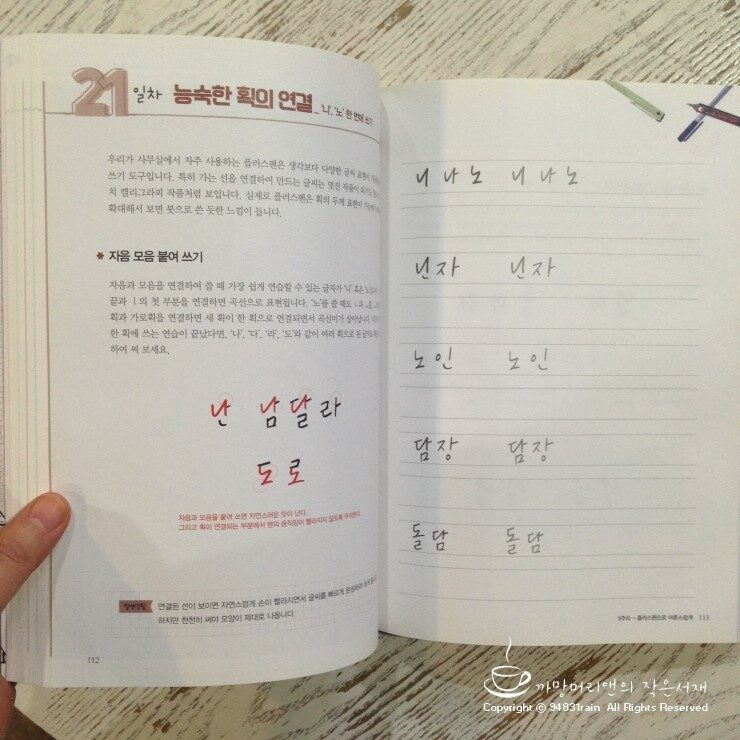 21 일차 능숙한 획의 연결_ '니', '노' 한 번에 쓰기
우리가 사무실에서 자주 사용하는 플러스펜은 생각보다 다양한 글씨 표현이
쓰기 도구입니다. 특히 가는 선을 연결하여 만드는 글씨는 멋진 작품이
치 캘리그라피 작품처럼 보입니다. 실제로 플러스펜은 획의 두께 표현이
확대해서 보면 붓으로 쓴 듯한 느낌이 듭니다.
* 자음 모음 붙여 쓰기
자음과 모음을 연결하여 쓸 때 가장 쉽게 연습할 수 있는 글자가 '니' 혹은
끝과 ㅣ의 첫 부분을 연결하면 곡선으로 표현됩니다. '노'를 쓸 때도
획과 가로획을 연결하면 세 획이 한 획으로 연결되면서 곡선미가
한 획에 쓰는 연습이 끝났다면, '나', '다', '라', '도'와 같이 여러 획으로 된
하여 써 보세요.
난 남달라
도로
자음과 모음을 붙여 쓰면 자연스러운 맛이 난다.
그리고 획이 연결되는 부분에서 펜의 움직임이 빨라지지 않도록 주의한다.
연결된 선이 보이면 자연스럽게 손이 빨라지면서 글씨를 빠르게
하지만 천천히 써야 모양이 제대로 나옵니다.
112
니 나 노 니 나 노
닌자 닌자
노인 노인
담장 담장
돌담 돌담
5주차 - 플러스펜으로 어른스럽게 113
까망머리앤의 작은서재
Copyright © 94831rain All Rights Reserved